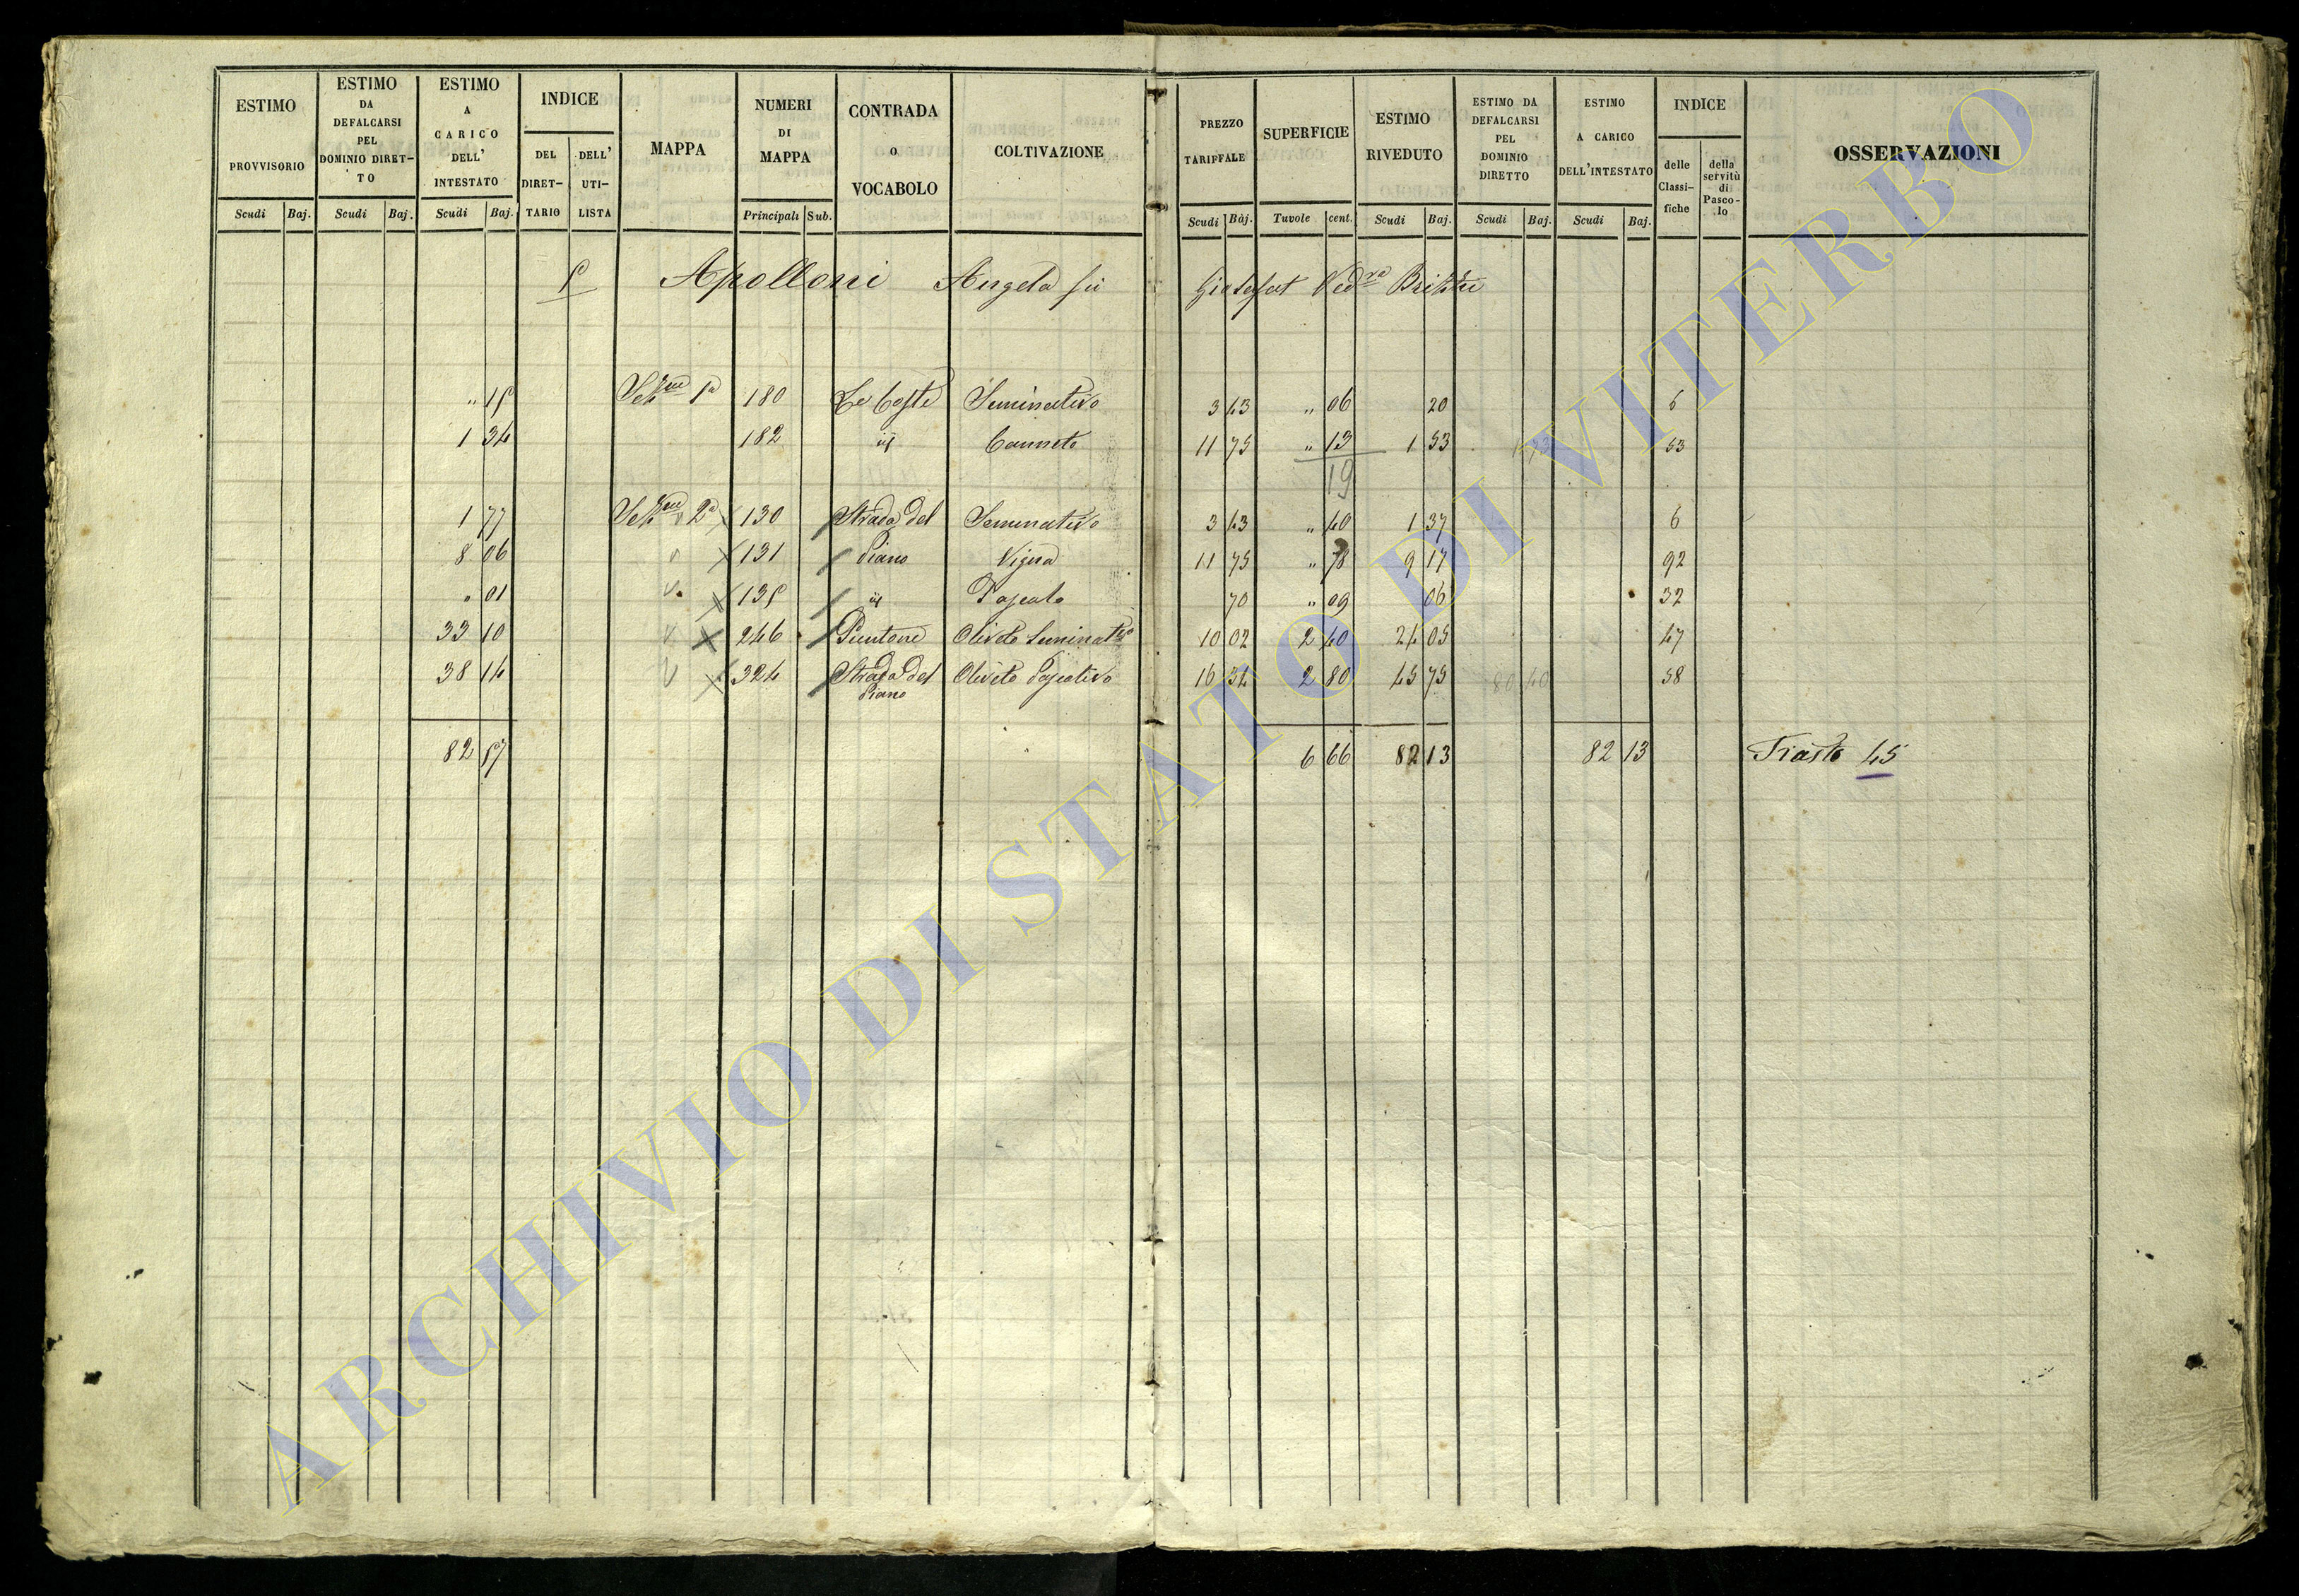 ESTIMO PROVVISORIO Scudi Baj.
ESTIMO DA DEFALCARSI PEL DOMINIO DIRET-TO Scudi Baj.
ESTIMO A CARICO DELL' INTESTATO Scudi Baj.
INDICE DEL DIRET-TARIO DELL' UTI-LISTA
MAPPA
NUMERI DI MAPPA Principali Sub.
CONTRADA O VOCABOLO
COLTIVAZIONE
PREZZO TARIFFALE Scudi Baj.
SUPERFICIE Tavole cent.
ESTIMO RIVEDUTO Scudi Baj.
ESTIMO DA DEFALCARSI PEL DOMINIO DIRETTO Scudi Baj.
ESTIMO A CARICO DELL'INTESTATO Scudi Baj.
INDICE delle Classi-fiche della servitù di Pasco-lo
OSSERVAZIONI
Apolloni Angela fu Giosafat Ved.va
1a 180 Le Coste Seminativo 3 43 " 06 20 6
1 34 182 Canneto 11 75 " 13 1 53 53
19
1 77 2a 130 Strada del Seminativo 3 43 " 40 1 37 6
8 06 131 Piano Vigna 11 75 " 78 9 17 92
" 01 Pascolo 70 " 09 06 32
33 10 246 Olivato Seminat.vo 10 02 2 40 24 05 47
38 14 324 Strada del Piano Olivato Pascolivo 16 34 2 80 45 75 80 40 58
82 57 6 66 82 13 82 13 45
ARCHIVIO DI STATO DI VITERBO